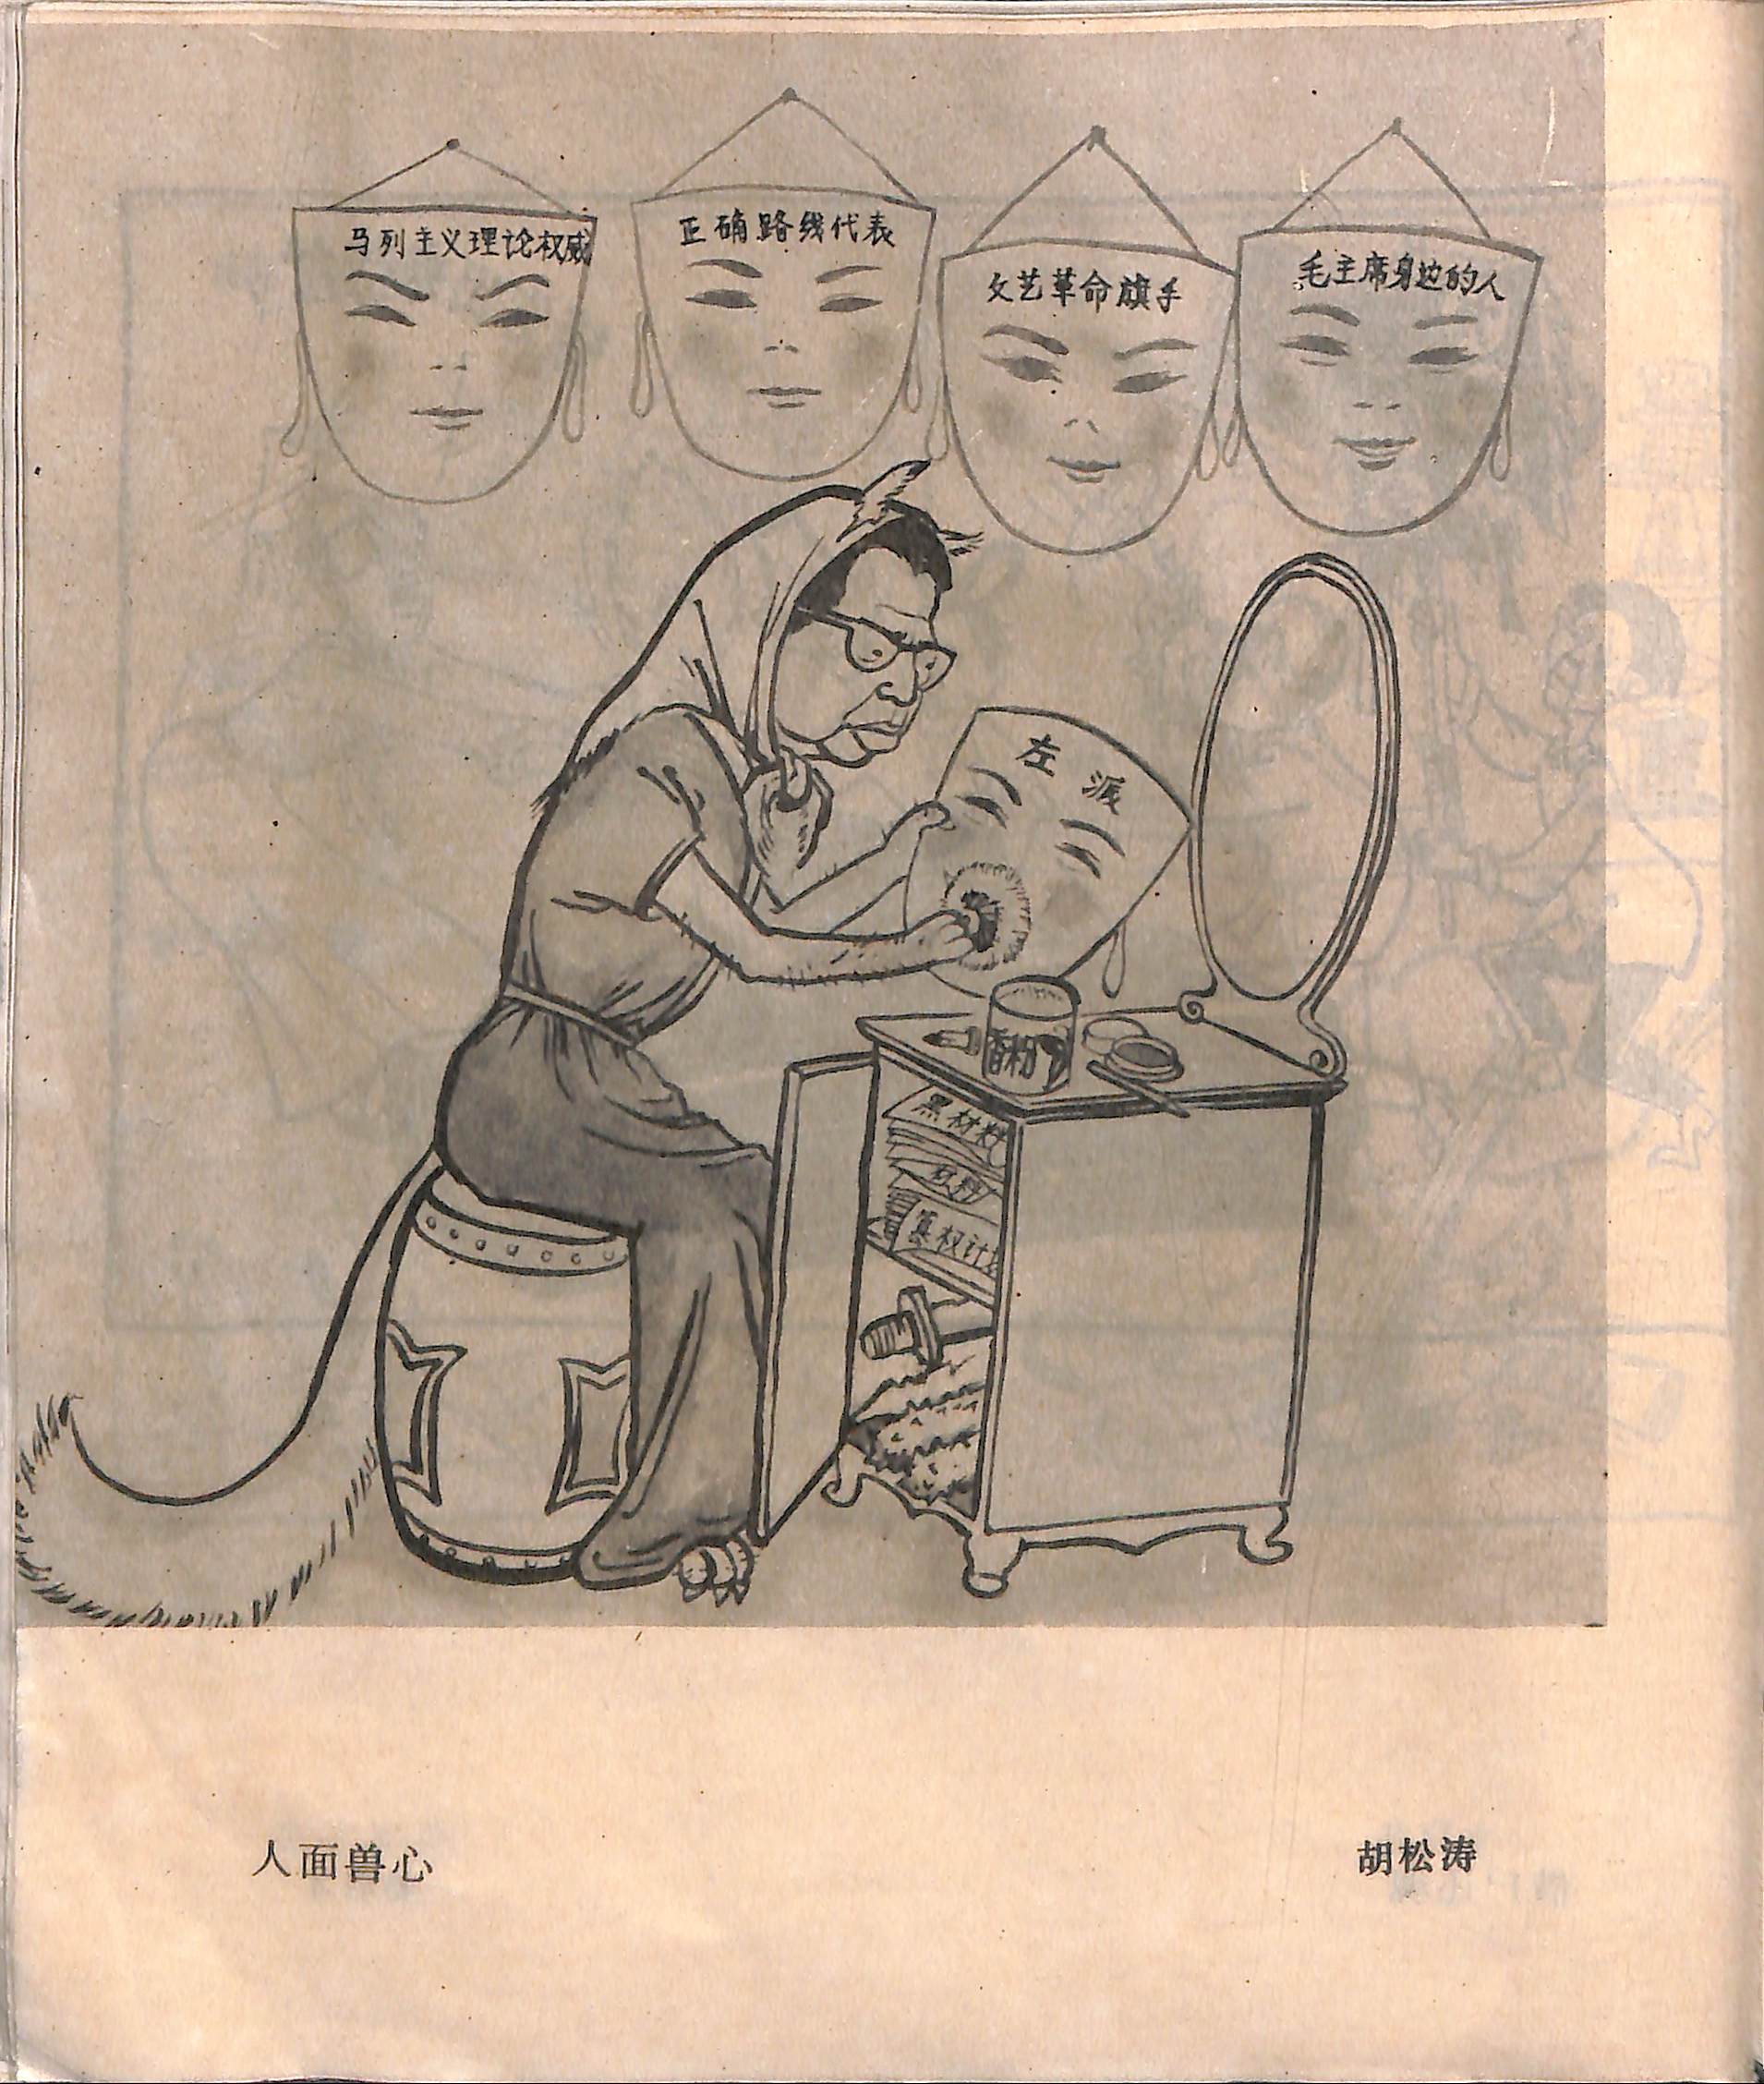 马列主义理论权威
正确路线代表
文艺革命旗手
毛主席身边的人
左派
香粉
黑材料
材料
篡权计
人面兽心
胡松涛